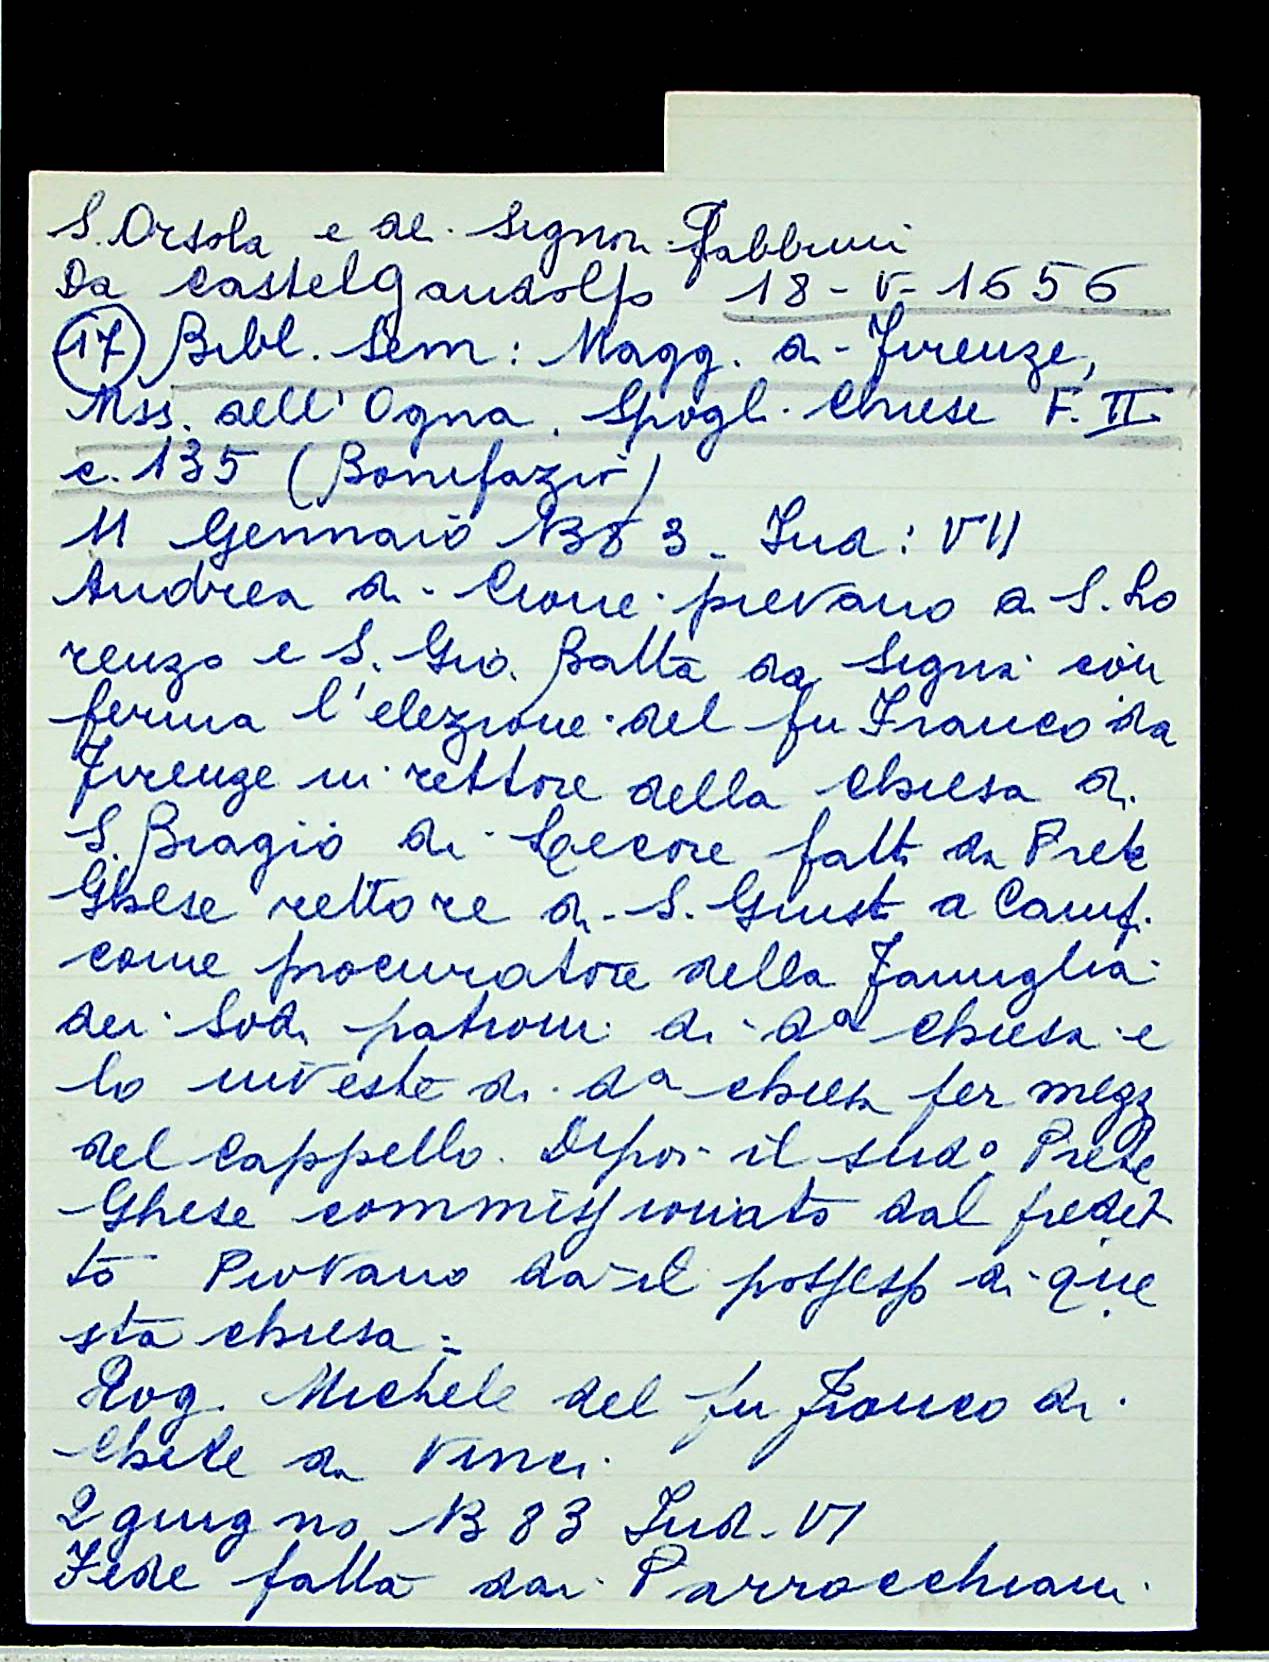 S. Orsola e de. Signori Fabbrini
Da Castelgandolfo 18-V-1656
(17) Bibl. Sem: Magg. di Firenze,
Mss. dell'Ogna. Spogl. Chiese F. II
c. 135 (Bonifazio)
11 Gennaio 1383 - Ind: VII
Andrea di Cione pievano a S. Lo
renzo e S. Gio. Batta da Signa con
ferma l'elezione del fu Franco da
Firenze in rettore della Chiesa di
S. Biagio di fatta da Prete
Ghese rettore di S. Giusto a Camp.
come procuratore della Famiglia
dei Sodi patroni di da Chiesa e
lo investe di da chiesa per mezz
del cappello. Dipoi il sudo Prete
Ghese commissionato dal predet
to Piovano da il possesso di que
sta chiesa =
Rog. Michele del fu Franco di
Chele da Vinci.
2 giugno 1383 Ind. VI
Fede fatta dai Parrocchiani